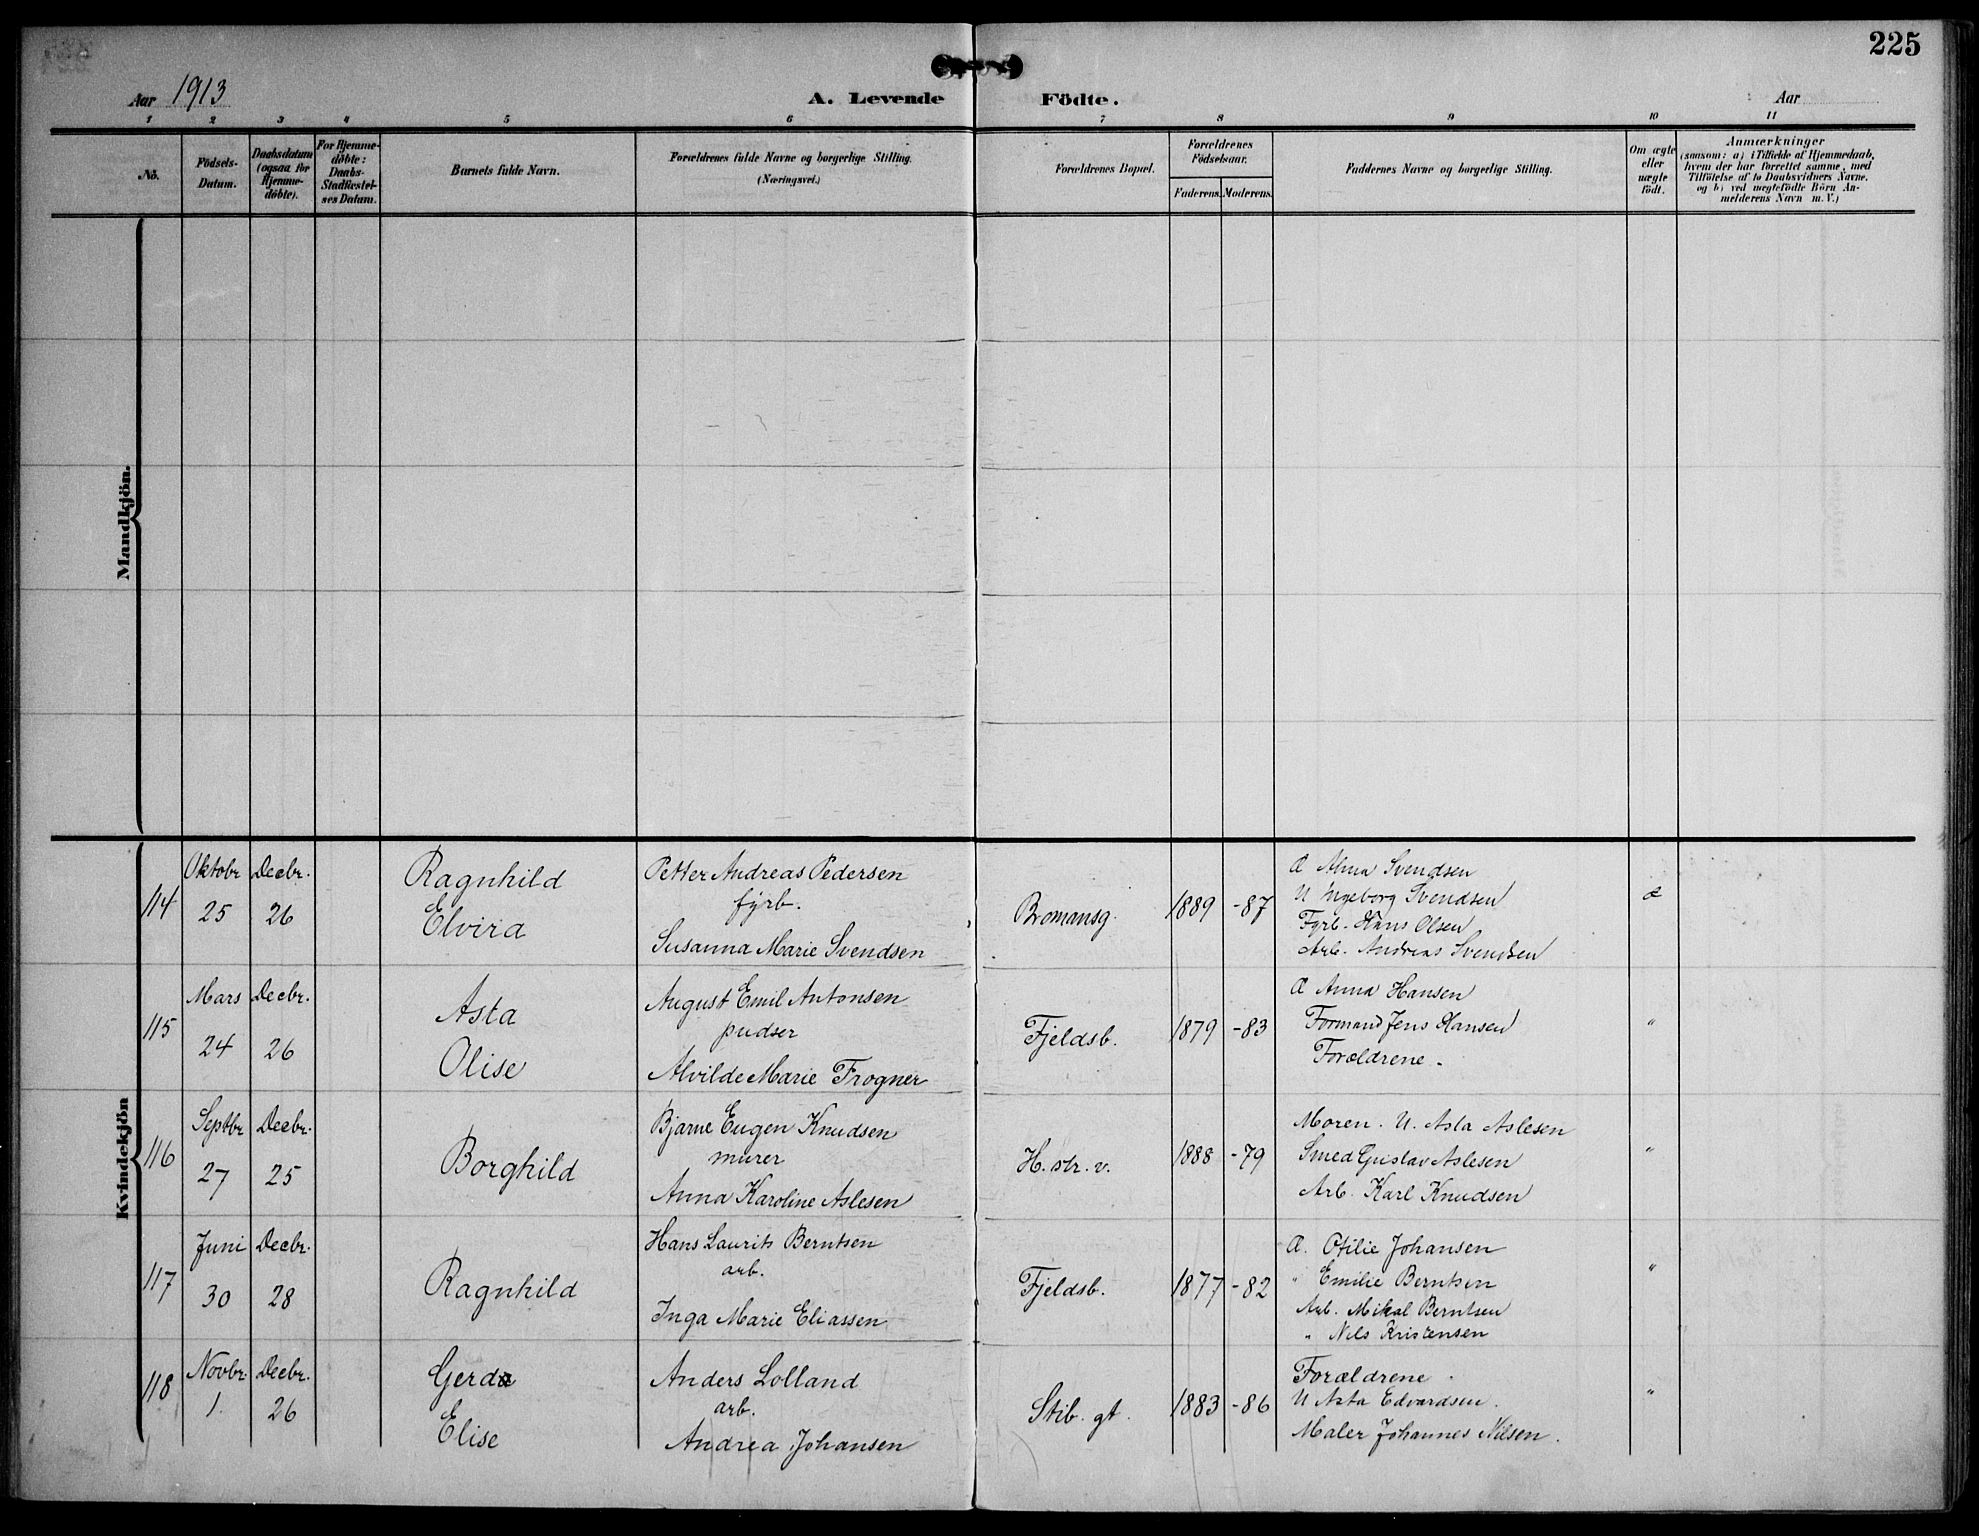 225
Aar 1913
A. Levende Födte.
Aar
1 2 3 4 5 6 7 8 9 10 11
No.
Födsels-
Datum.
Daabsdatum
(ogsaa for
Hjemme-
döbte).
For Hjemme-
döbte:
Daabs-
Stadfæstel-
ses Datum.
Barnets fulde Navn.
Forældrenes fulde Navne og borgerlige Stilling.
(Næringsvei.)
Forældrenes Bopæl.
Forældrenes
Födselsaar.
Faderens. Moderens.
Faddernes Navne og borgerlige Stilling.
Om ægte
eller
uægte
födt.
Anmærkninger
(saasom: a) i Tilfælde af Hjemmedaab,
hvem der har forrettet samme, med
Tilföielse af to Daabsvidners Navne,
og b) ved uægtefödte Börn An-
melderens Navn m. V.)
Mandkjön.
Kvindekjön
114
Oktobr
25
Decbr.
26
Ragnhild
Elvira
Petter Andreas Pedersen
fyrb.
Susanna Marie Svendsen
Bromansg.
1889
-87
Æ Alma Svendsen
U Ingeborg Svendsen
Fyrb. Hans Olsen
Arb. Andreas Svendsen
æ
115
Mars
24
Decbr.
26
Asta
Olise
August Emil Antonsen
pudser
Alvilde Marie Frogner
Fjeldsb.
1879
-83
Æ Anna Hansen
Formand Jens Hansen
Forældrene.
"
116
Septbr
27
Decbr.
25
Borghild
Bjarne Eugen Knudsen
murer
Anna Karoline Aslesen
H. str. v.
1888
-79
Moren. U. Asta Aslesen
Smed Gustav Aslesen
Arb. Karl Knudsen
"
117
Juni
30
Decbr.
28
Ragnhild
Hans Laurits Berntsen
arb.
Inga Marie Eliassen
Fjeldsb.
1877
-82
Æ. Otilie Johansen
" Emilie Berntsen
Arb. Mikal Berntsen
" Nils Kristensen
"
118
Novbr.
1.
Decbr.
26
Gerda
Elise
Anders Lolland
arb.
Andrea Johansen
Stib. gt.
1883
-86
Forældrene
U Asta Edvardsen.
Maler Johannes Nilsen.
"